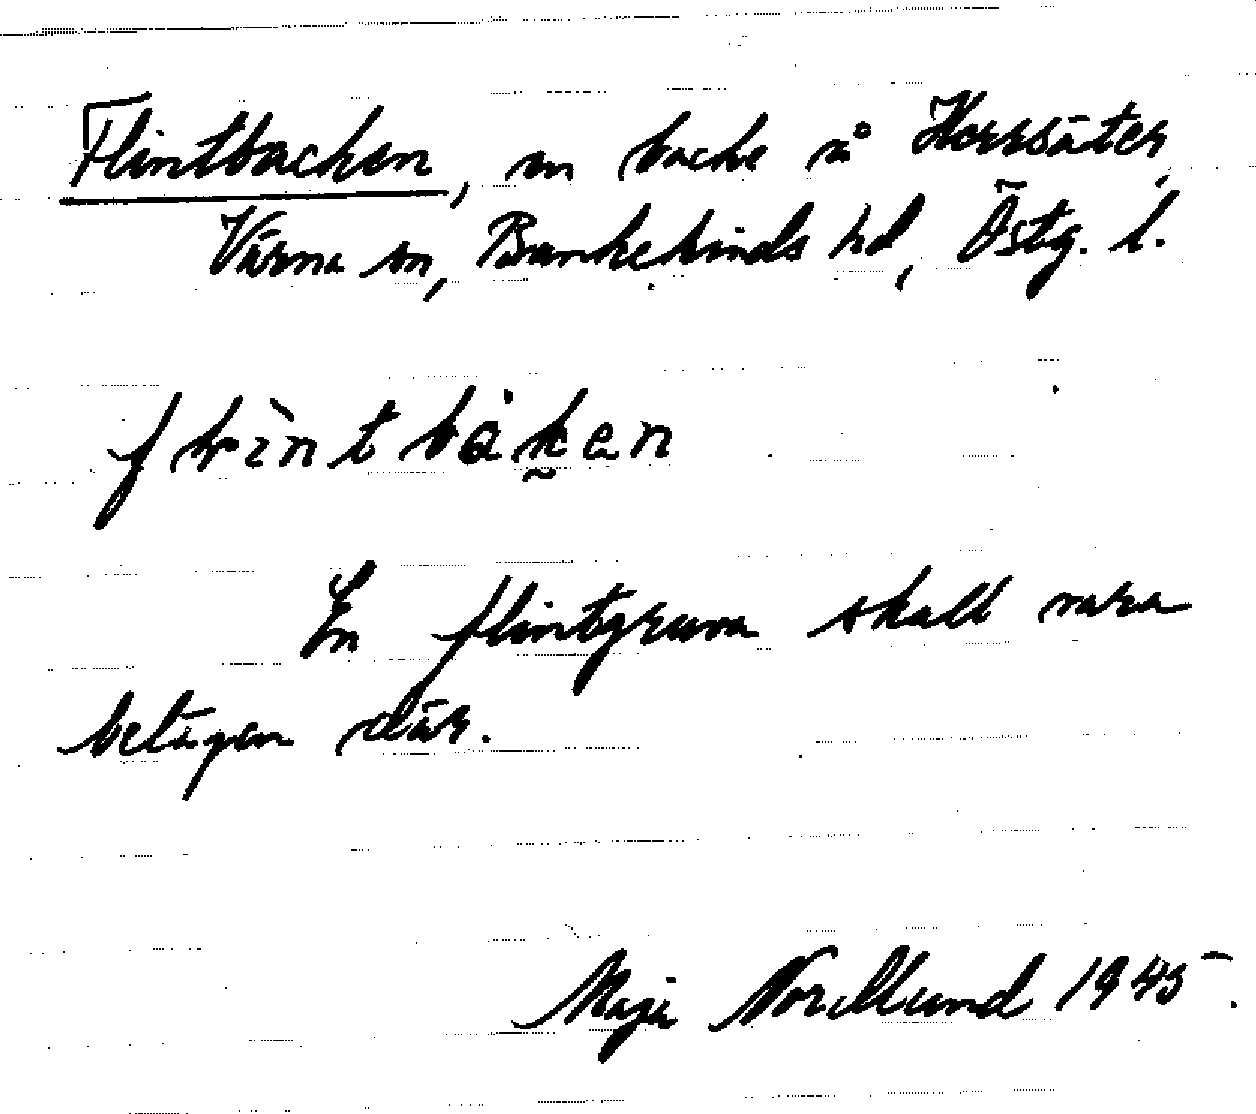 Flintbacken, en backe å Horssäter,
Värna sn, Bankekinds hd, Östg. l.
En flintgruva skall vara
belägen där.
Maja Nordlund 1945.